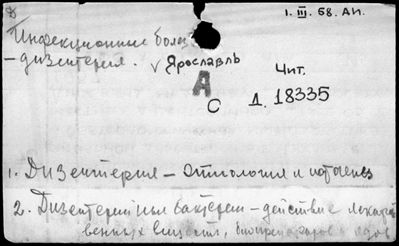 1. III. 68. АИ.
Инфекционные болез
– дизентерия. V Ярославль
Чит.
А
С Д. 18335
1. Дизентерия – этиология и патогенез
2. Дизентерийные бактерии – действие лекарст
венных веществ,